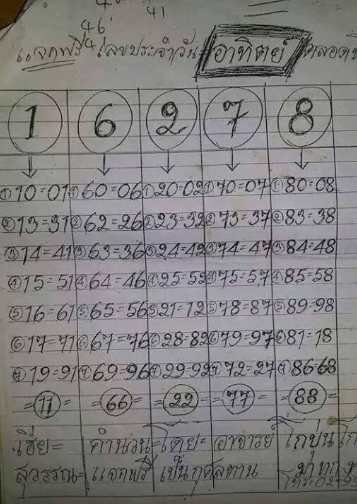 46
41
แจกฟรี เลขประจำวัน อาทิตย์ ตลอด
1 6 2 7 8
① 10=01 ① 60=06 ① 20-02 ① 70=07 ① 80=08
② 13=31 ② 62=26 ② 23=32 ② 73=37 ② 83=38
③ 14=41 ③ 63=36 ③ 24=42 ③ 74=47 ③ 84=48
④ 15=51 ④ 64=46 ④ 25=52 ④ 75=57 ④ 85=58
⑤ 16=61 ⑤ 65=56 ⑤ 21=12 ⑤ 78=87 ⑤ 89=98
⑥ 17=71 ⑥ 67=76 ⑥ 28=82 ⑥ 79=97 ⑥ 81=18
⑦ 19=91 ⑦ 69=96 ⑦ 29-92 ⑦ 72=27 ⑦ 86-68
=11= =66= =22= =77= =88=
เฮีย= คำนวน=โดย= อาจารย์
สุวรรณ= แจกฟรี เป็นกุศลทาน